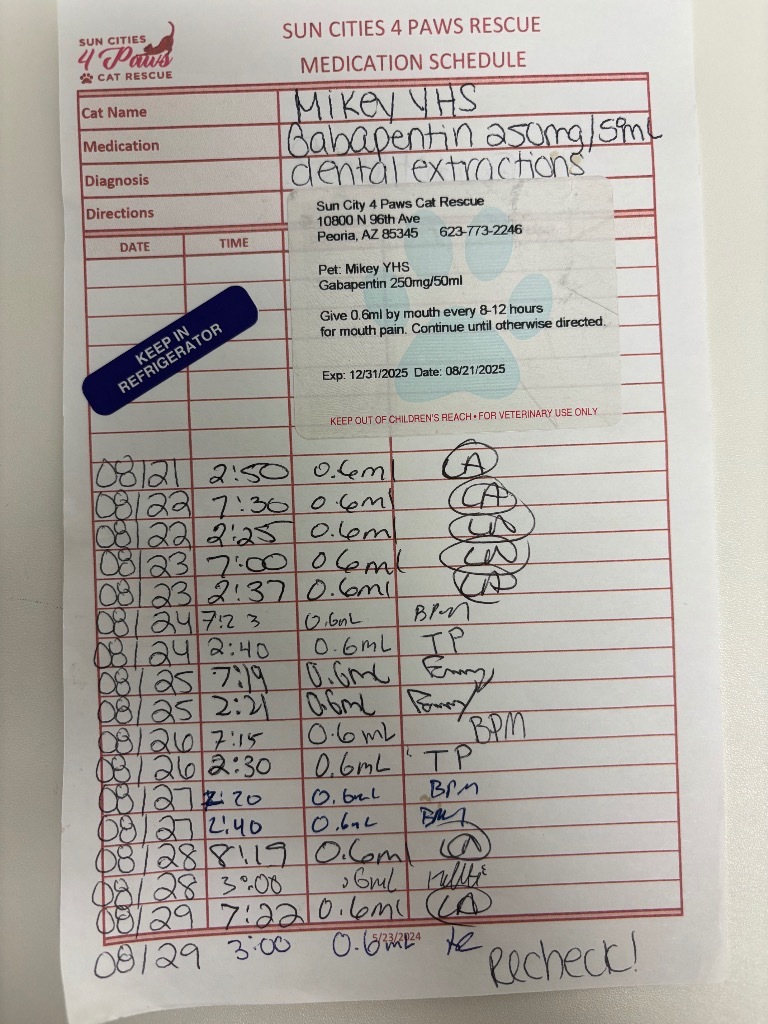 SUN CITIES
4 Paws
CAT RESCUE
SUN CITIES 4 PAWS RESCUE
MEDICATION SCHEDULE
Cat Name Mikey YHS
Medication Gabapentin 250mg/50mL
Diagnosis dental extractions
Directions
DATE TIME
Sun City 4 Paws Cat Rescue
10800 N 96th Ave
Peoria, AZ 85345 623-773-2246
Pet: Mikey YHS
Gabapentin 250mg/50ml
Give 0.6ml by mouth every 8-12 hours
for mouth pain. Continue until otherwise directed.
Exp: 12/31/2025 Date: 08/21/2025
KEEP OUT OF CHILDREN'S REACH • FOR VETERINARY USE ONLY
KEEP IN
REFRIGERATOR
08/21 2:50 0.6ml CA
08/22 7:36 0.6ml CA
08/22 2:25 0.6ml CA
08/23 7:00 0.6ml CA
08/23 2:37 0.6ml CA
08/24 7:23 0.6mL BPM
08/24 2:40 0.6mL TP
08/25 7:19 0.6mL
08/25 2:21 0.6mL
08/26 7:15 0.6mL BPM
08/26 2:30 0.6mL TP
08/27 7:20 0.6mL BPM
08/27 2:40 0.6mL BPM
08/28 8:19 0.6ml CA
08/28 3:08 .6ml
08/29 7:22 0.6ml CA
5/23/2024
08/29 3:00 0.6mL
Recheck!